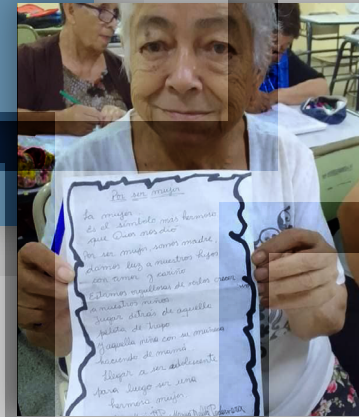 Por ser mujer
La mujer
es el símbolo más hermoso
que Dios nos dió
Por ser mujer somos madre
damos luz a nuestros hijos
con amor y cariño
estamos orgullosas de verlos crecer
a nuestros niños
jugar detrás de aquella
pelota de trapo
y aquella niña con su muñeca
haciendo de mamá
llegar a ser adolescente
para luego ser una
hermosa mujer